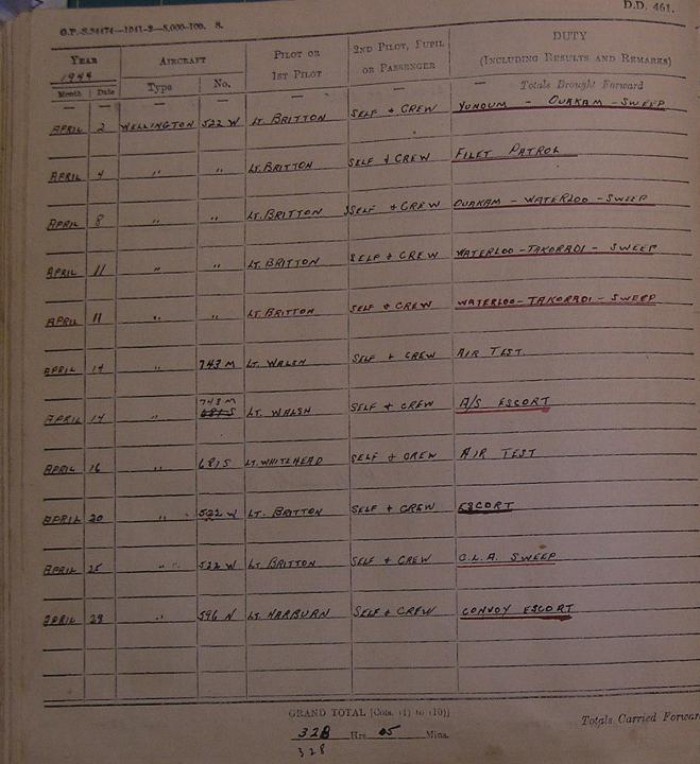 D.D. 461.
G.P.-S.34474—1941-2—5,000-100. S.
YEAR AIRCRAFT PILOT OR 1ST PILOT 2ND PILOT, PUPIL OR PASSENGER DUTY (INCLUDING RESULTS AND REMARKS)
1944
Month Date Type No. Totals Brought Forward
APRIL 2 WELLINGTON 522 W LT BRITTON SELF + CREW YUNDUM - OUAKAM - SWEEP
APRIL 4 " " LT. BRITTON SELF + CREW FILET PATROL
APRIL 8 " " LT. BRITTON SELF + CREW OUAKAM - WATERLOO - SWEEP
APRIL 11 " " LT. BRITTON SELF + CREW WATERLOO - TAKORADI - SWEEP
APRIL 11 " " LT. BRITTON SELF + CREW WATERLOO - TAKORADI - SWEEP
APRIL 14 " 743 M LT. WALSH SELF + CREW AIR TEST
743 M
APRIL 14 " 681 S LT. WALSH SELF + CREW A/S ESCORT
APRIL 16 " 681 S LT. WHITEHEAD SELF + CREW AIR TEST
APRIL 20 " 522 W LT. BRITTON SELF + CREW ESCORT
APRIL 25 " 522 W LT. BRITTON SELF + CREW C.L.A. SWEEP
APRIL 29 " 596 N LT. HARBURN SELF + CREW CONVOY ESCORT
GRAND TOTAL [Cols. (1) to (10)] Totals Carried Forward
328 Hrs. 05 Mins.
328